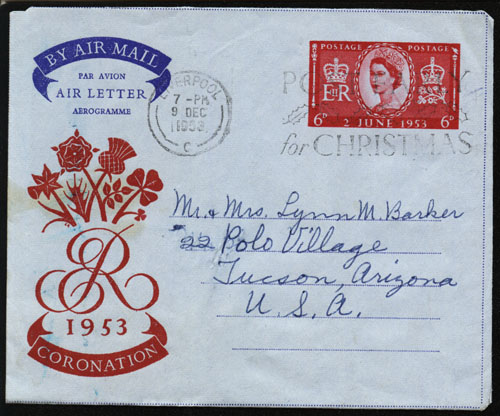 BY AIR MAIL
PAR AVION
AIR LETTER
AEROGRAMME
LIVERPOOL
7 - PM
9 DEC
1953
C
POSTAGE POSTAGE
E II R
6D 2 JUNE 1953 6D
for CHRISTMAS
Mr. & Mrs. Lynn M. Barker
22 Polo Village
Tucson, Arizona
U. S. A.
ER
1953
CORONATION